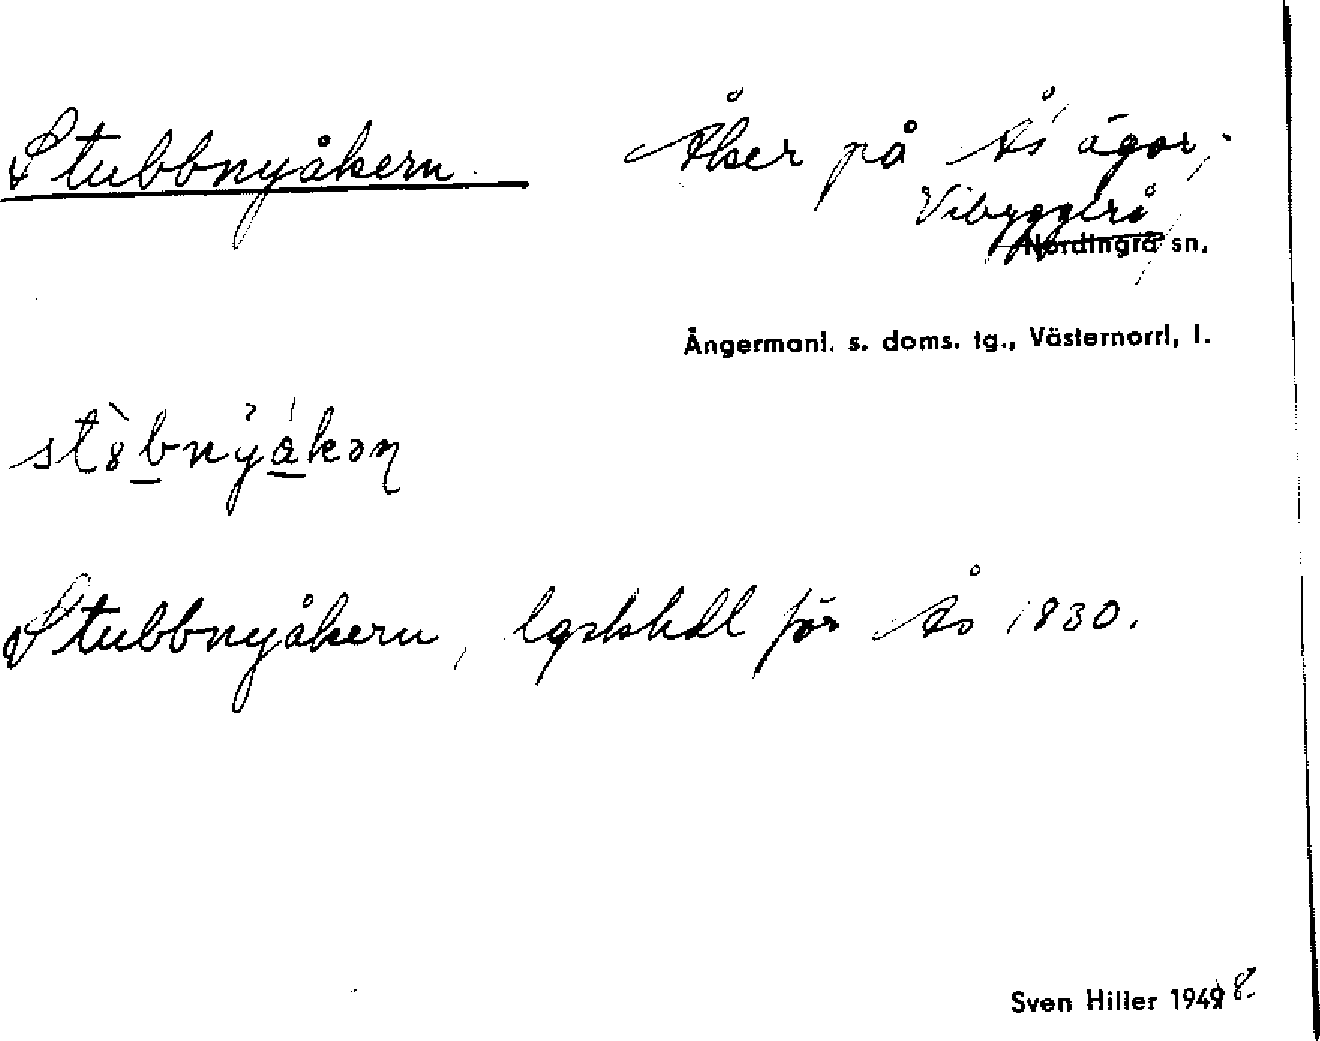 Stubbnyåkern. Åker på Ås' ägor,
Vibyggerå
Nordingrå sn.
Ångermanl. s. doms. tg., Västernorrl, l.
Stubbnyåkern, lgskhdl för Ås 1830.
Sven Hiller 1949 8.